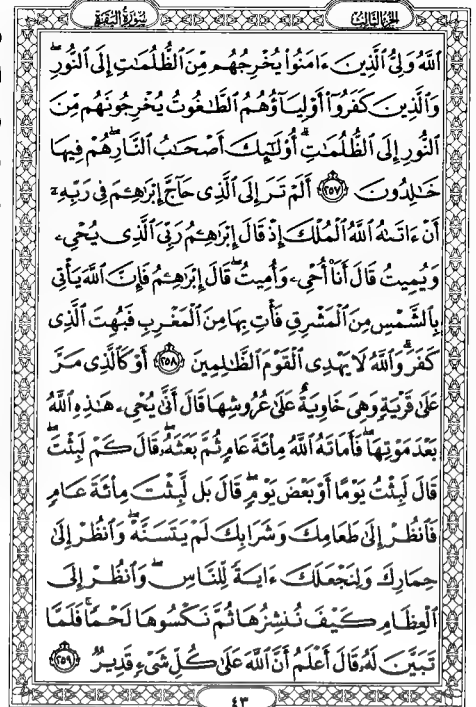 الجزء الثالث
سورة البقرة
ٱللَّهُ وَلِيُّ ٱلَّذِينَ ءَامَنُوا۟ يُخْرِجُهُم مِّنَ ٱلظُّلُمَٰتِ إِلَى ٱلنُّورِۖ
وَٱلَّذِينَ كَفَرُوٓا۟ أَوْلِيَآؤُهُمُ ٱلطَّٰغُوتُ يُخْرِجُونَهُم مِّنَ
ٱلنُّورِ إِلَى ٱلظُّلُمَٰتِۗ أُو۟لَٰٓئِكَ أَصْحَٰبُ ٱلنَّارِۖ هُمْ فِيهَا
خَٰلِدُونَ ٢٥٧ أَلَمْ تَرَ إِلَى ٱلَّذِى حَآجَّ إِبْرَٰهِـۧمَ فِى رَبِّهِۦٓ
أَنْ ءَاتَىٰهُ ٱللَّهُ ٱلْمُلْكَ إِذْ قَالَ إِبْرَٰهِـۧمُ رَبِّىَ ٱلَّذِى يُحْىِۦ
وَيُمِيتُ قَالَ أَنَا۠ أُحْىِۦ وَأُمِيتُۖ قَالَ إِبْرَٰهِـۧمُ فَإِنَّ ٱللَّهَ يَأْتِى
بِٱلشَّمْسِ مِنَ ٱلْمَشْرِقِ فَأْتِ بِهَا مِنَ ٱلْمَغْرِبِ فَبُهِتَ ٱلَّذِى
كَفَرَۗ وَٱللَّهُ لَا يَهْدِى ٱلْقَوْمَ ٱلظَّٰلِمِينَ ٢٥٨ أَوْ كَٱلَّذِى مَرَّ
عَلَىٰ قَرْيَةٍ وَهِىَ خَاوِيَةٌ عَلَىٰ عُرُوشِهَا قَالَ أَنَّىٰ يُحْىِۦ هَٰذِهِ ٱللَّهُ
بَعْدَ مَوْتِهَاۖ فَأَمَاتَهُ ٱللَّهُ مِا۟ئَةَ عَامٍ ثُمَّ بَعَثَهُۥۖ قَالَ كَمْ لَبِثْتَۖ
قَالَ لَبِثْتُ يَوْمًا أَوْ بَعْضَ يَوْمٍۖ قَالَ بَل لَّبِثْتَ مِا۟ئَةَ عَامٍ
فَٱنظُرْ إِلَىٰ طَعَامِكَ وَشَرَابِكَ لَمْ يَتَسَنَّهْۖ وَٱنظُرْ إِلَىٰ
حِمَارِكَ وَلِنَجْعَلَكَ ءَايَةً لِّلنَّاسِۖ وَٱنظُرْ إِلَى
ٱلْعِظَامِ كَيْفَ نُنشِزُهَا ثُمَّ نَكْسُوهَا لَحْمًاۚ فَلَمَّا
تَبَيَّنَ لَهُۥ قَالَ أَعْلَمُ أَنَّ ٱللَّهَ عَلَىٰ كُلِّ شَىْءٍ قَدِيرٌ ٢٥٩
٤٣